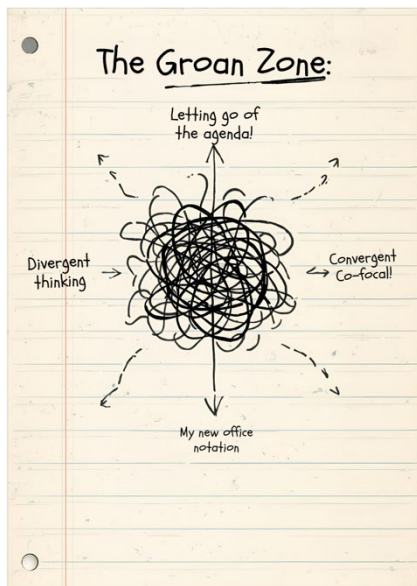 The Groan Zone:
Letting go of
the agenda!
Divergent
thinking
Convergent
Co-focal!
My new office
notation